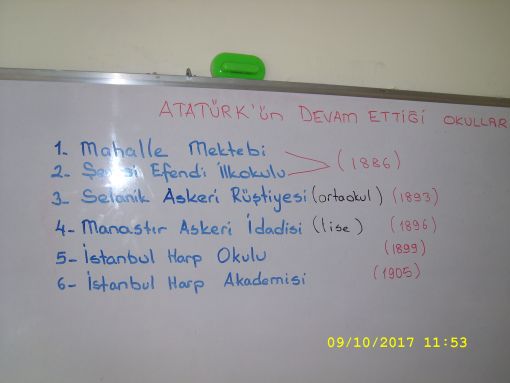 ATATÜRK'ün DEVAM ETTİĞİ OKULLAR
1- Mahalle Mektebi
2- Şemsi Efendi İlkokulu (1886)
3- Selanik Askeri Rüştiyesi (ortaokul) (1893)
4- Manastır Askeri İdadisi (lise) (1896)
5- İstanbul Harp Okulu (1899)
6- İstanbul Harp Akademisi (1905)
09/10/2017 11:53